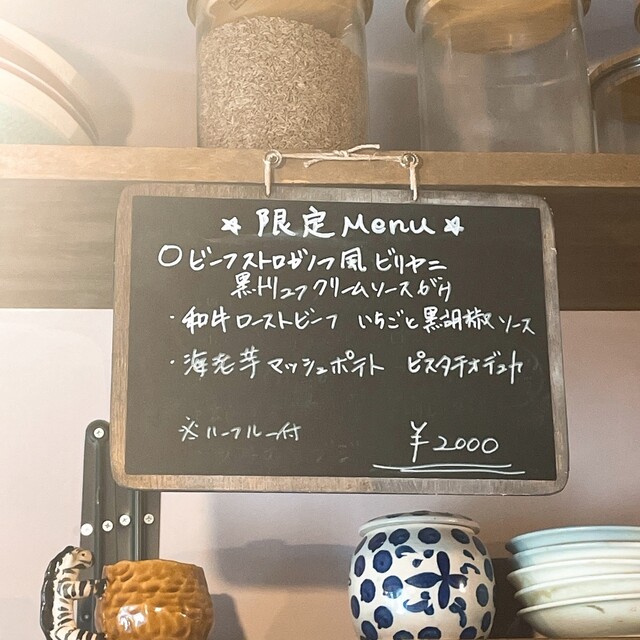 ☆ 限定 Menu ☆
○ ビーフストロガノフ風 ビリヤニ
黒トリュフクリームソースがけ
・和牛ローストビーフ いちごと黒胡椒ソース
・海老芋マッシュポテト ピスタチオデュカ
※ルーフルー付
¥2000